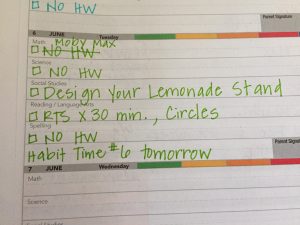 □ No HW
Parent Signature
6 JUNE Tuesday
Math Moby Max
□ No HW
Science
□ No HW
Social Studies
□ Design Your Lemonade Stand
Reading / Language Arts
□ RTS X 30 min., Circles
Spelling
□ No HW
Habit Time #6 tomorrow
Parent Signature
7 JUNE Wednesday
Math
Science
Social Studies